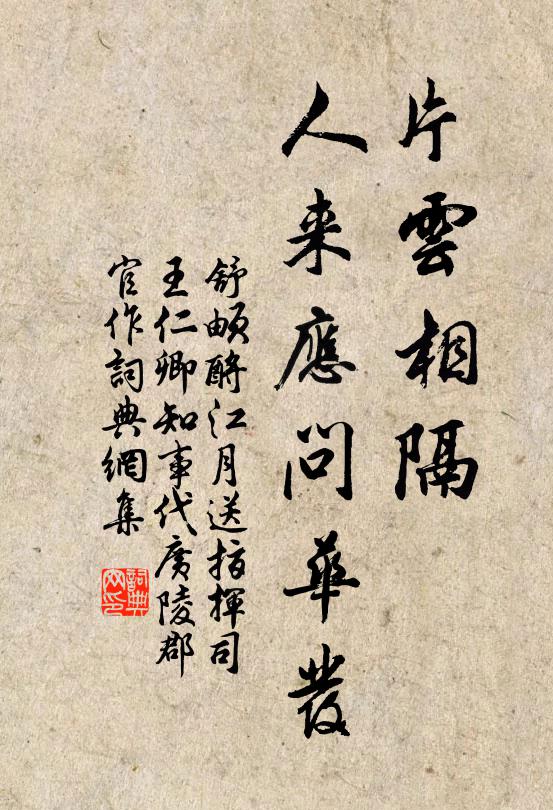 片雲相隔
人来應問華發
舒頔酹江月送指揮司
王仁卿知事代廣陵郡
官作詞典網集
詞典網印